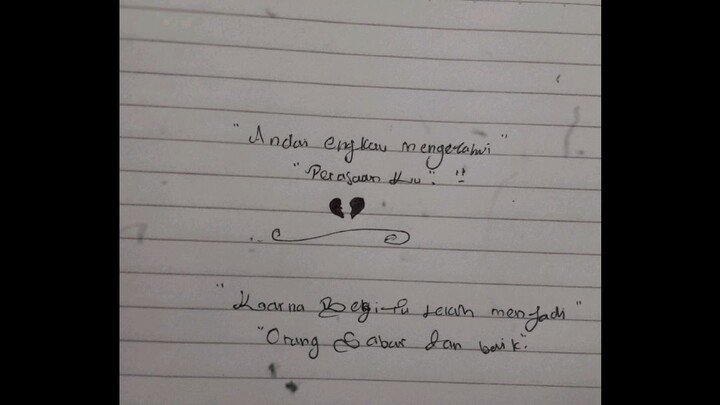 "Andai engkau mengetahui"
"Perasaan Ku". !!
"Kaarna Begitu lelah menjadi"
"Orang Sabar dan baik".